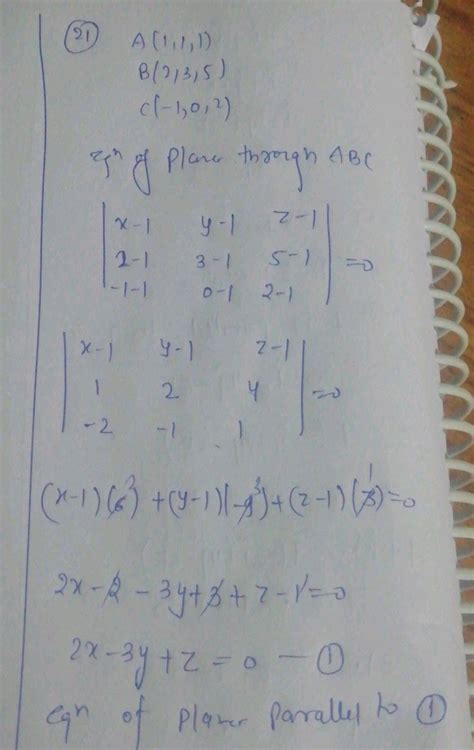 21 A(1,1,1)
B(2,3,5)
C(-1,0,2)
Eqn of Plane through ABC
| x-1 y-1 z-1 |
| 2-1 3-1 5-1 | =0
| -1-1 0-1 2-1 |
| x-1 y-1 z-1 |
| 1 2 4 | =0
| -2 -1 1 |
(x-1)(6)+(y-1)(-9)+(z-1)(3)=0
2x-2-3y+3+z-1=0
2x-3y+z=0 — ①
Eqn of Plane Parallel to ①